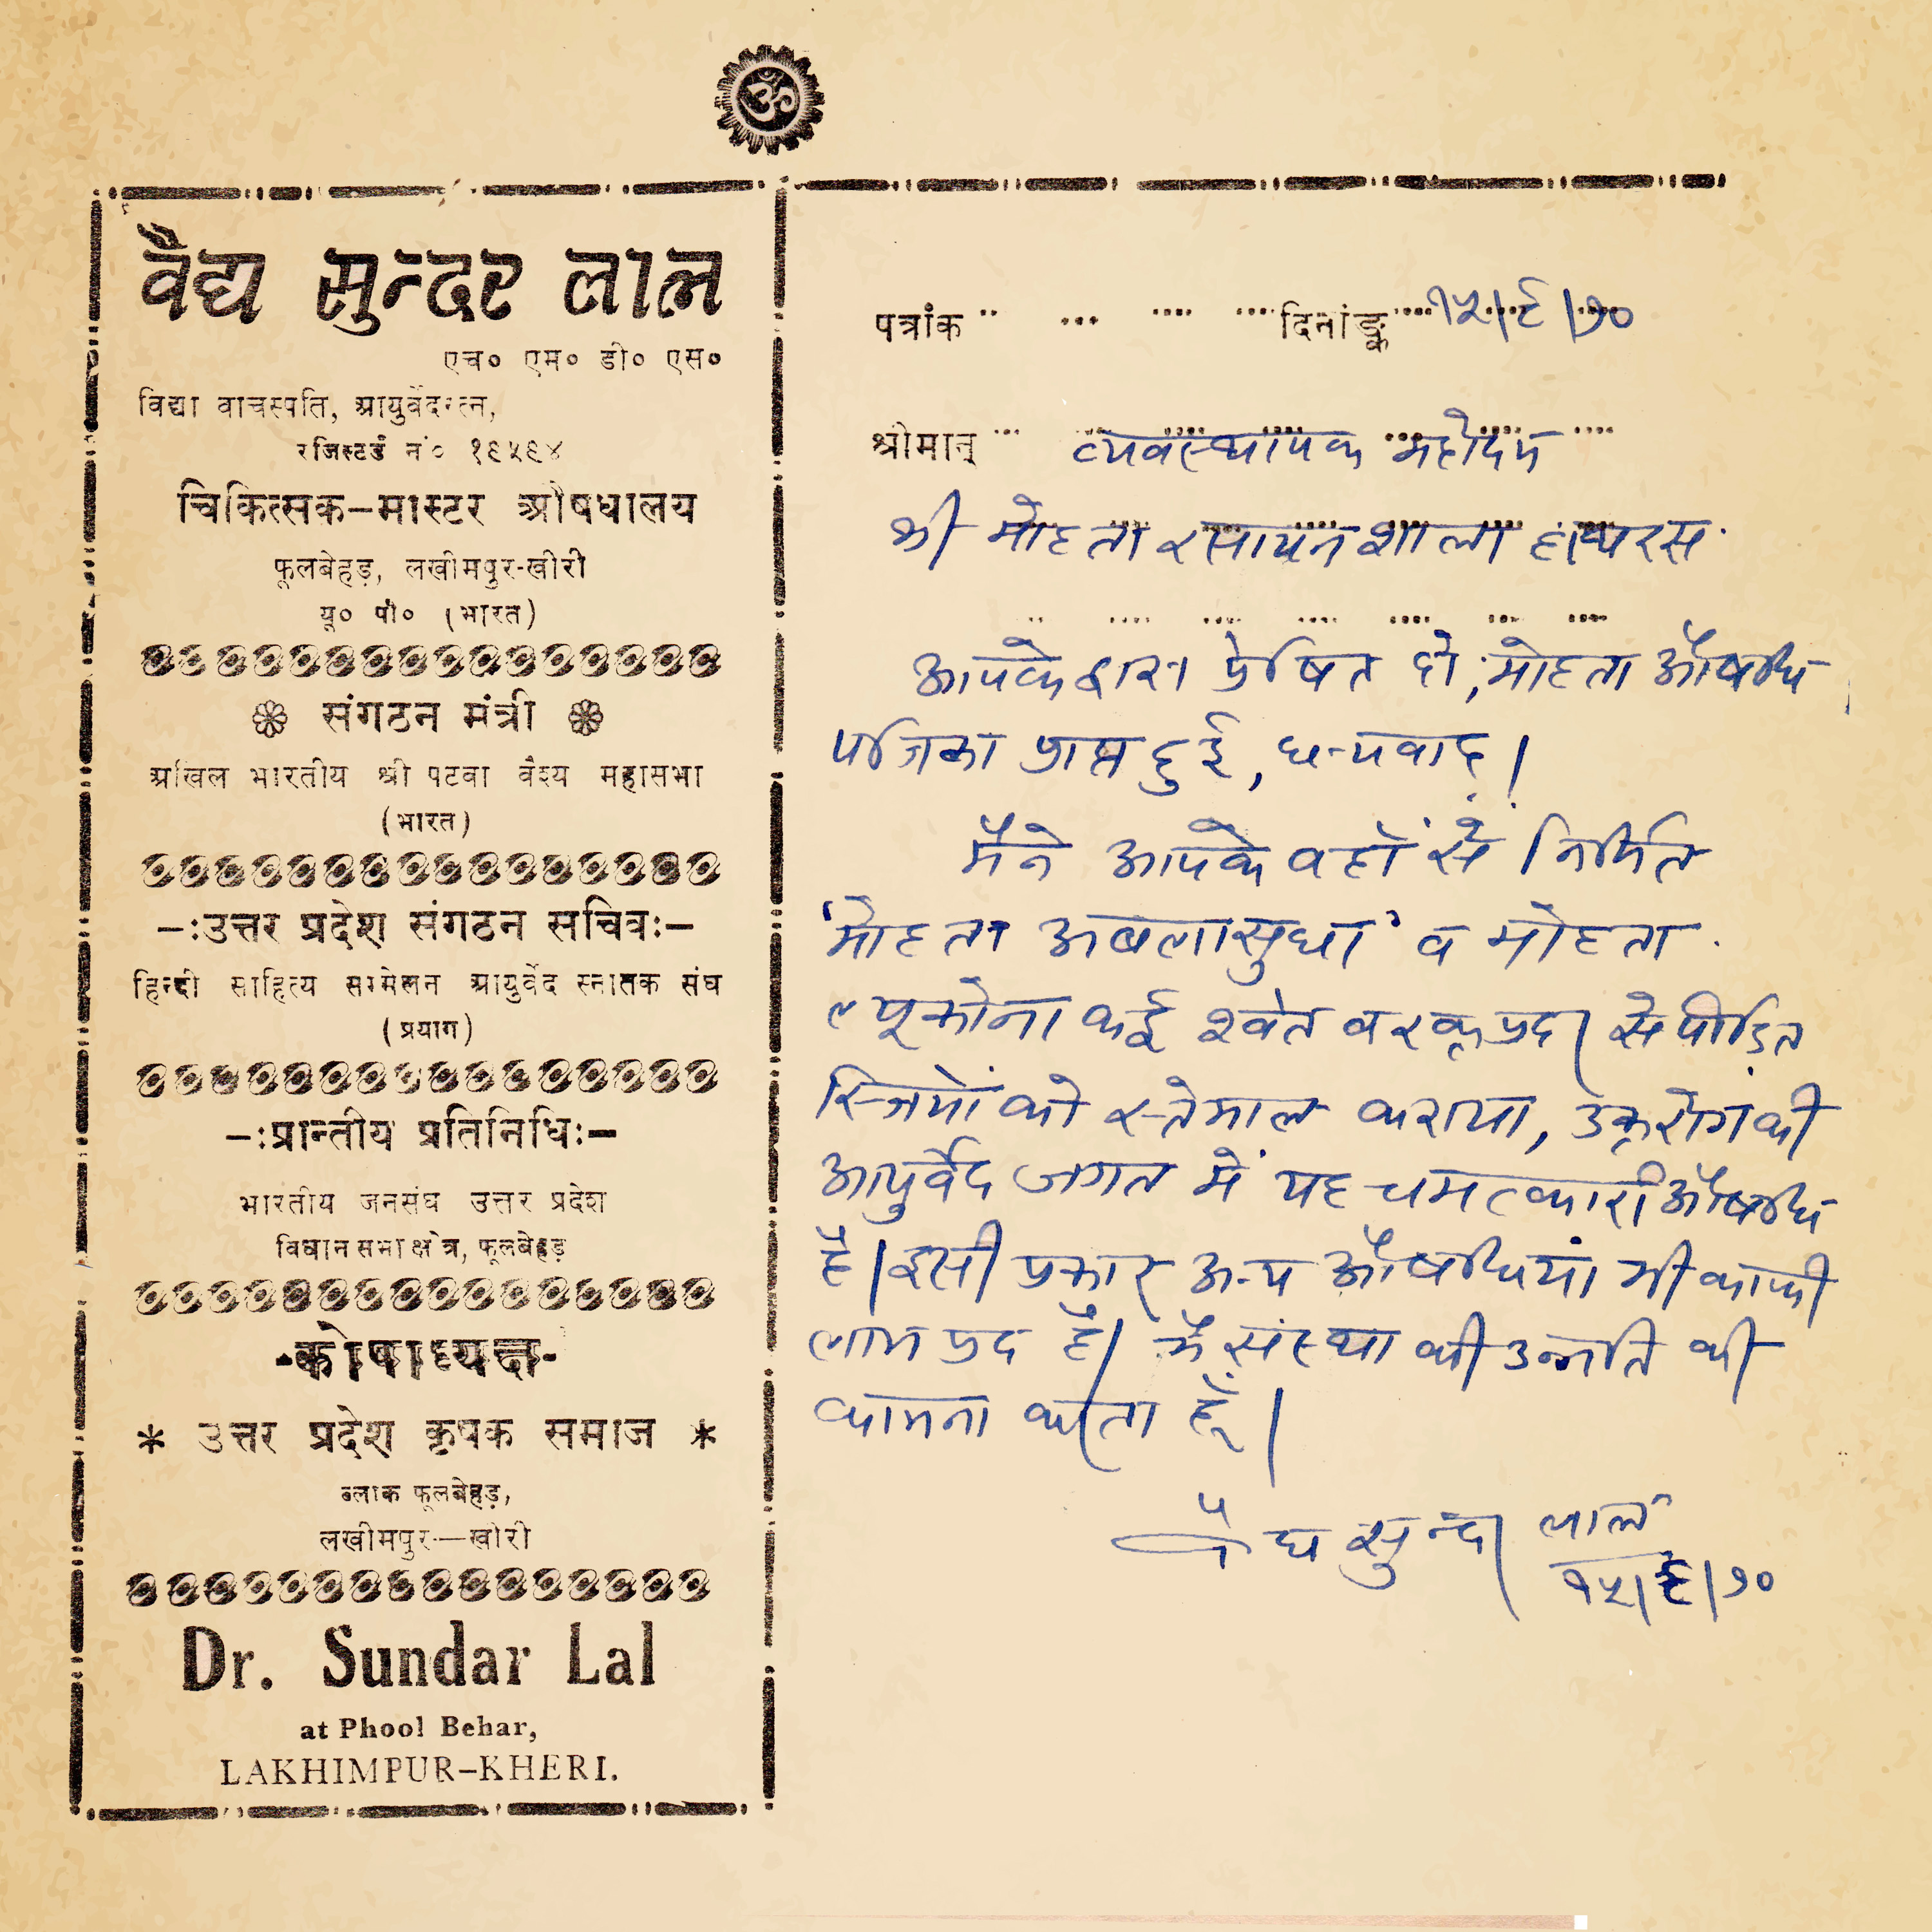 ॐ
वैद्य सुन्दर लाल
एच० एम० डी० एस०
विद्या वाचस्पति, आयुर्वेदरत्न,
रजिस्टर्ड नं० १६५६४
चिकित्सक-मास्टर औषधालय
फूलबेहड़, लखीमपुर-खीरी
यू० पी० (भारत)
संगठन मंत्री
अखिल भारतीय श्री पटवा वैश्य महासभा
(भारत)
-:उत्तर प्रदेश संगठन सचिव:-
हिन्दी साहित्य सम्मेलन आयुर्वेद स्नातक संघ
(प्रयाग)
-:प्रान्तीय प्रतिनिधि:-
भारतीय जनसंघ उत्तर प्रदेश
विधान सभा क्षेत्र, फूलबेहड़
-कोषाध्यक्ष-
* उत्तर प्रदेश कृषक समाज *
ब्लाक फूलबेहड़,
लखीमपुर—खीरी
Dr. Sundar Lal
at Phool Behar,
LAKHIMPUR-KHERI.
पत्रांक .. ... .... .... दिनांङ्क .... १५/६/७०
श्रीमान् ... व्यवस्थापक महोदय
श्री मोहता रसायनशाला हाथरस
आपके द्वारा प्रेषित दो, मोहता औषधि
पत्रिका प्राप्त हुई, धन्यवाद।
मैंने आपके वहाँ से निर्मित
'मोहता अबलासुधा' व मोहता
ल्यूकोना कई श्वेत व रक्त प्रदर से पीड़ित
स्त्रियों को स्तेमाल कराया, उक्त रोग की
आयुर्वेद जगत में यह चमत्कारी औषधि
है। इसी प्रकार अन्य औषधियां भी काफी
लाभ प्रद हैं। मैं संस्था की उन्नति की
कामना करता हूँ।
वैद्य सुन्दर लाल
१५/६/७०